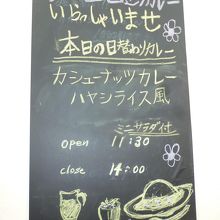 カレー
いらっしゃいませ
本日の日替わりカレー
カシューナッツカレー
ハヤシライス風
ミニサラダ付
open 11:30
close 14:00